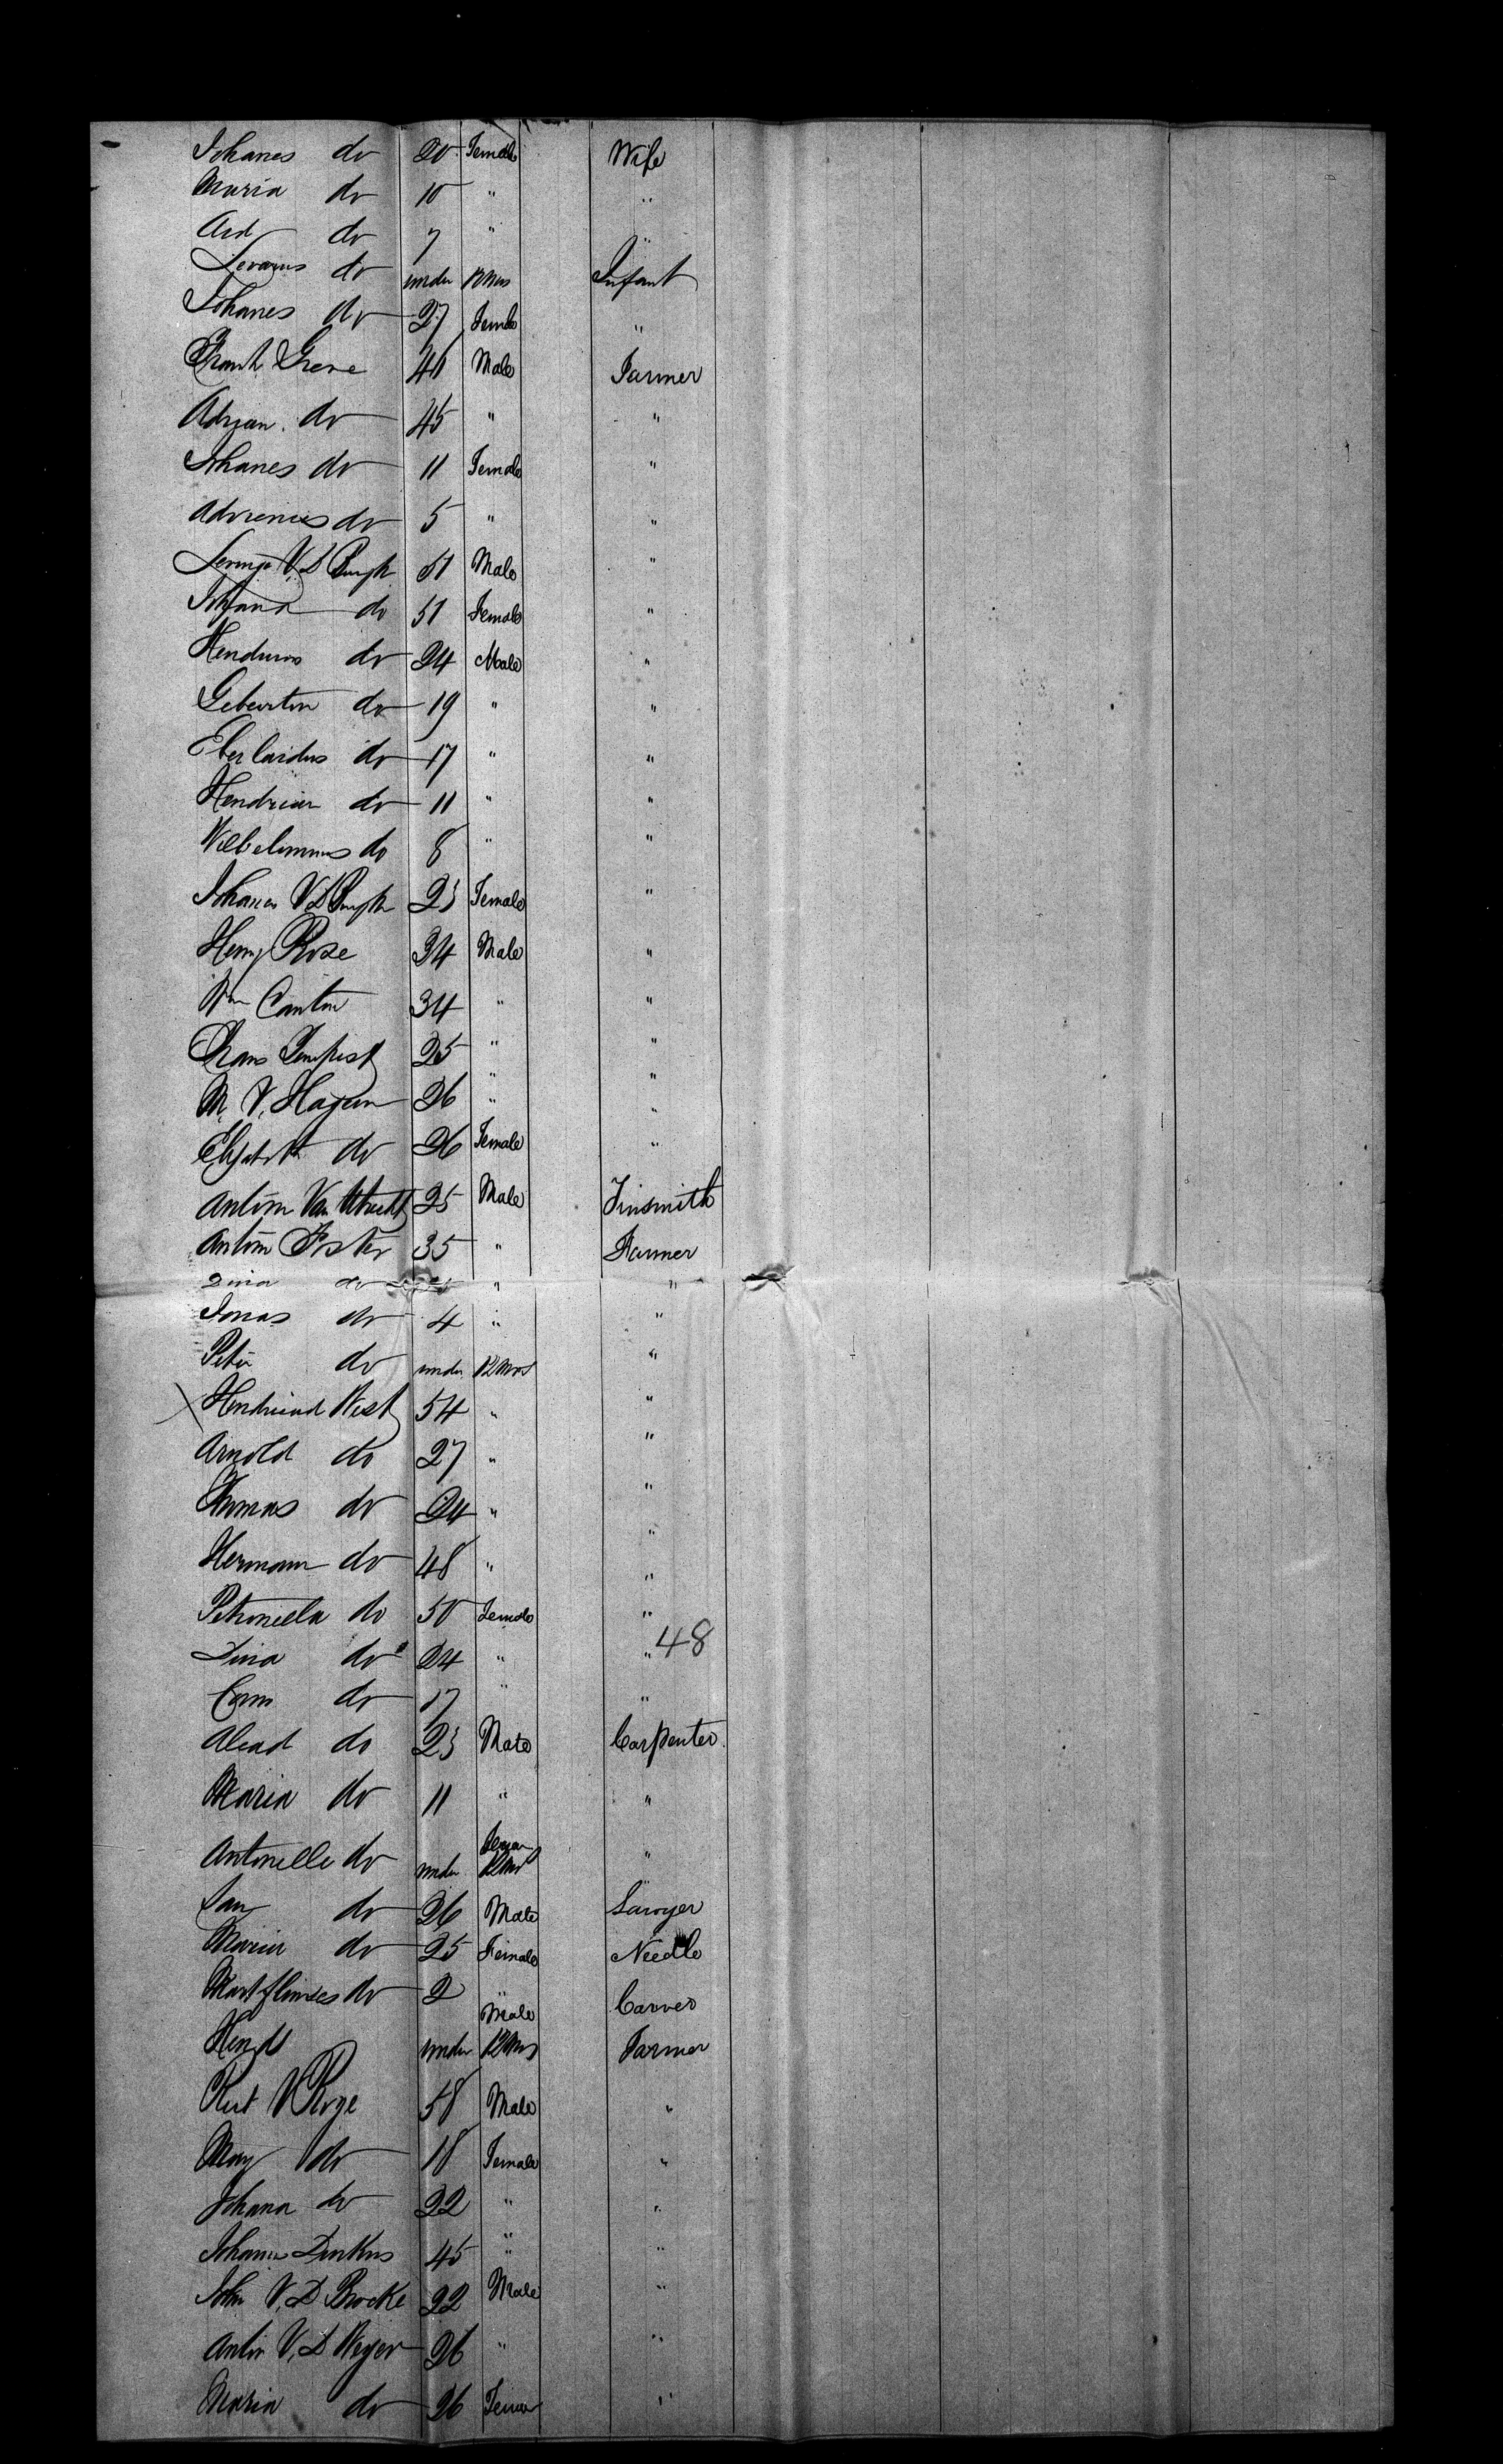 Johanes do 20 Female Wife
Maria do 10 " "
Ard do 7 " "
do under 12 Mos Infant
Johanes do 27 Female "
Frank Greve 41 Male Farmer
Adrian do 45 " "
Johanes do 11 Female "
Adrienies do 5 " "
V. D Burgh 51 Male "
Johana do 51 Female "
Hendricus do 24 Male "
Geberton do 19 " "
Eberlardus do 17 " "
Hendrian do 11 " "
Wilhelmmus do 8 " "
Johanes V D Burgh 23 Female "
Henry Rose 34 Male "
Wm Canton 34 " "
25 " "
M. V. Hagen 26 " "
Elizabeth do 26 Female "
Anton Van Utrecht 25 Male Tinsmith
Anton Foster 35 " Farmer
Dina do " "
Jonas do 4 " "
Peter do under 12 Mos "
West 54 " "
Arnold do 27 " "
Thomas do 24 " "
Hermann do 48 " "
Petronella do 50 Female "
Dina do 24 " " 48
do 17 " "
do 23 Male Carpenter
Maria do 11 " "
Antonelle do under 12 Mos "
Jan do 26 Male Sawyer
Maria do 25 Female Needle
do 2 " Male Carver
under 12 Mos Farmer
58 Male "
May do 18 Female "
Johana do 22 " "
Johanes Dirkus 45 " "
John V. D Brocke 22 Male "
Anton V. D Weyer 26 " "
Maria do 26 Female "